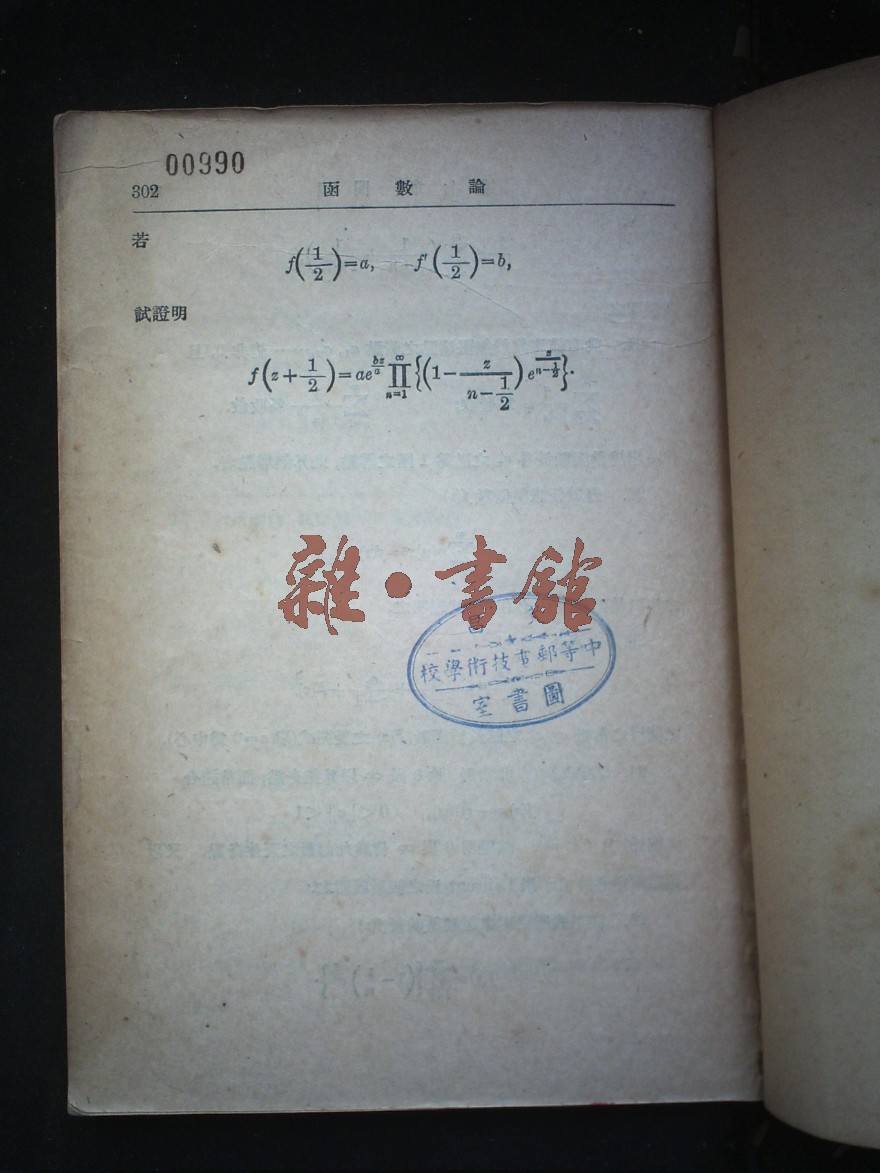 00990
302 函數論
若
f(1/2)=a, f'(1/2)=b,
試證明
f(z+1/2)=ae^{bz/a}∏_{n=1}^{∞}{(1-z/(n-1/2))e^{z/(n-1/2)}}.
雜·書館
中等郵電技術學校
圖書室